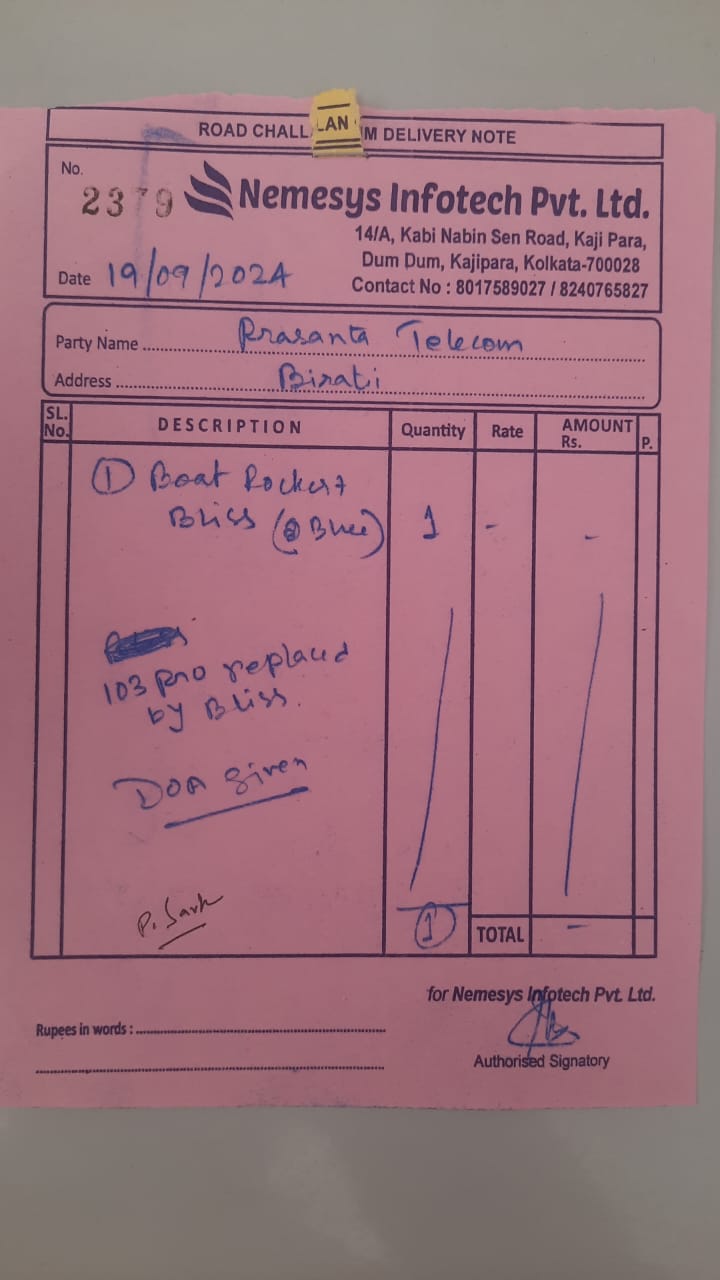 ROAD CHALLAN M DELIVERY NOTE
No. 2379
Nemesys Infotech Pvt. Ltd.
14/A, Kabi Nabin Sen Road, Kaji Para,
Dum Dum, Kajipara, Kolkata-700028
Contact No : 8017589027 / 8240765827
Date 19/09/2024
Party Name Prasanta Telecom
Address Birati
SL. No. DESCRIPTION Quantity Rate AMOUNT Rs. P.
① Boat Rockerz
Bliss (Blue) 1 - -
103 pro replaced
by Bliss.
DOA given
P. Sark
① TOTAL -
for Nemesys Infotech Pvt. Ltd.
Rupees in words :
Authorised Signatory